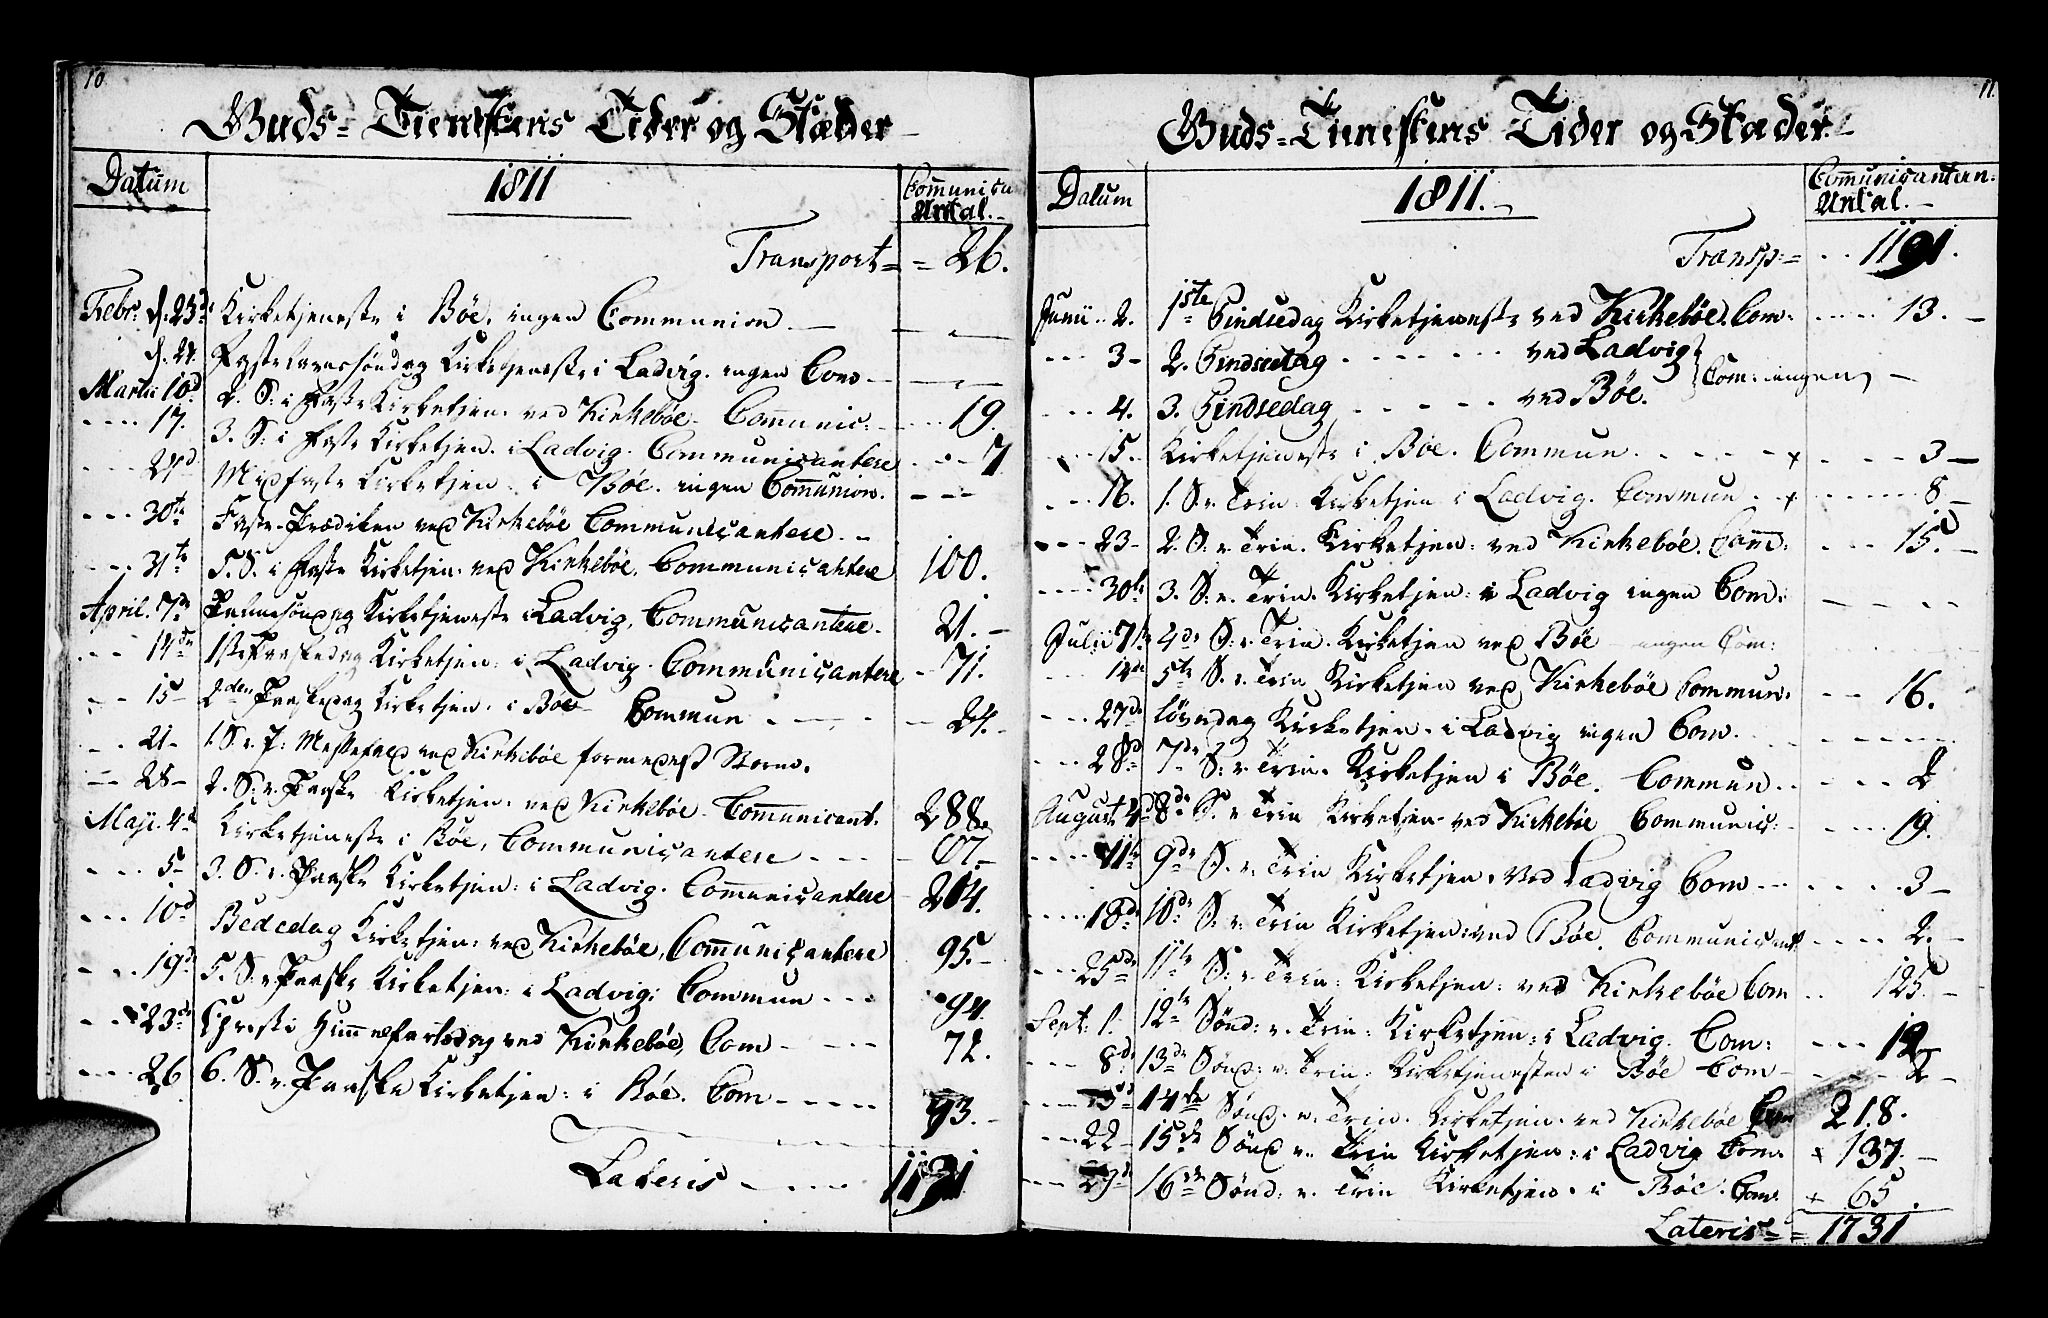 10
Guds-Tienestens Tider og Stæder
Datum 1811 Communica Antal.
Transport = 26.
Febr: d. 23d Kirketjeneste i Böe. ingen Communion.
d. 24. Fastelavnssöndag Kirketjeneste i Ladvig. ingen Com
Martii 10d 2. S: i Faste Kirketjen. ved Kirkeböe. Communic: 19.
17. 3. S: i Faste Kirketjen. i Ladvig. Communicantere 7
24d Midfaste Kirketjen. i Böe. ingen Communion.
30te Faste-Prædiken ved Kirkeböe Communicantere.
31te 5. S. i Faste Kirketjen. ved Kirkeböe. Communicantere 100.
April. 7de Palmesöndag Kirketjeneste i Ladvig, Communicantere. 21.
14de 1ste Paaskedag Kirketjen: i Ladvig. Communicantere 71.
15 2den Paaskedag Kirketjen. i Böe Commun 24.
21 1. S. e. P: Messefald ved Kirkeböe formedelst
28 2. S: e. Paaske Kirketjen. ved Kirkeböe. Communicant. 288.
Maji. 4d Kirketjeneste i Böe, Communicantere 67.
5 3. S. e. Paaske Kirketjen: i Ladvig. Communicantere 204.
10d Bededag Kirketjen: ved Kirkeböe, Communicantere 95.
19d 5. S. e. Paaske Kirketjen: i Ladvig: Commun 94.
23de Christi Himmelfartsdag ved Kirkeböe, Com 72.
26 6. S. e. Paaske Kirketjen: i Böe. Com 93.
Lateris 1191
11.
Guds-Tienestens Tider og Stæder.
Datum 1811. Communicanten: Antal.
Transp: = 1191.
Junii 2. 1ste Pindsedag Kirketjeneste ved Kirkeböe. Com. 13.
3 2. Pindsedag ved Ladvig } Com: ingen
4. 3. Pindsedag ved Böe.
15. Kirketjeneste i Böe. Commun 3
16. 1. S. e. Trin: Kirketjen i Ladvig. Commun 8
23 2. S: e. Trin. Kirketjen: ved Kirkeböe. Comm: 15.
30te 3. S: e. Trin. Kirketjen: i Ladvig ingen Com:
Julii 7de 4de S: e. Trin. Kirketjen ved Böe ingen Com:
14de 5te S. e. Trin Kirketjen ved Kirkeböe Commun: 16.
27de Löverdag Kirketjen. i Ladvig ingen Com.
28de 7de S: e. Trin. Kirketjen i Böe. Commun 2
August. 4d 8de S. e. Trin Kirketjen ved Kirkeböe Communic: 19.
11te 9de S. e. Trin Kirketjen. ved Ladvig Com 3
18de 10de S: e. Trin Kirketjen: ved Böe. Communicant 2.
25de 11te S. e. Trin: Kirketjen: ved Kirkeböe Com 125.
Sept: 1. 12te Sönd: e. Trin: Kirketjen: i Ladvig. Com: 12
8de 13de Sönd: e. Trin: Kirketjenesten i Böe Com 2
15d 14de Sönd. e. Trin. Kirketjen. ved Kirkeböe Com 218.
22 15de Sönd e. Trin Kirketjen: i Ladvig Com. 137.
29d 16de Sönd: e. Trin Kirketjen. i Böe. Com. 65.
Lateris = 1731